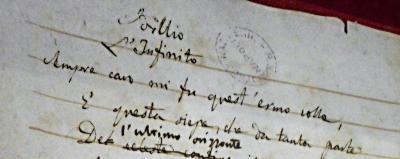 Idillio
L'Infinito
Sempre caro mi fu quest'ermo colle,
E questa siepe, che da tanta parte
l'ultimo orizzonte
Del celeste confine